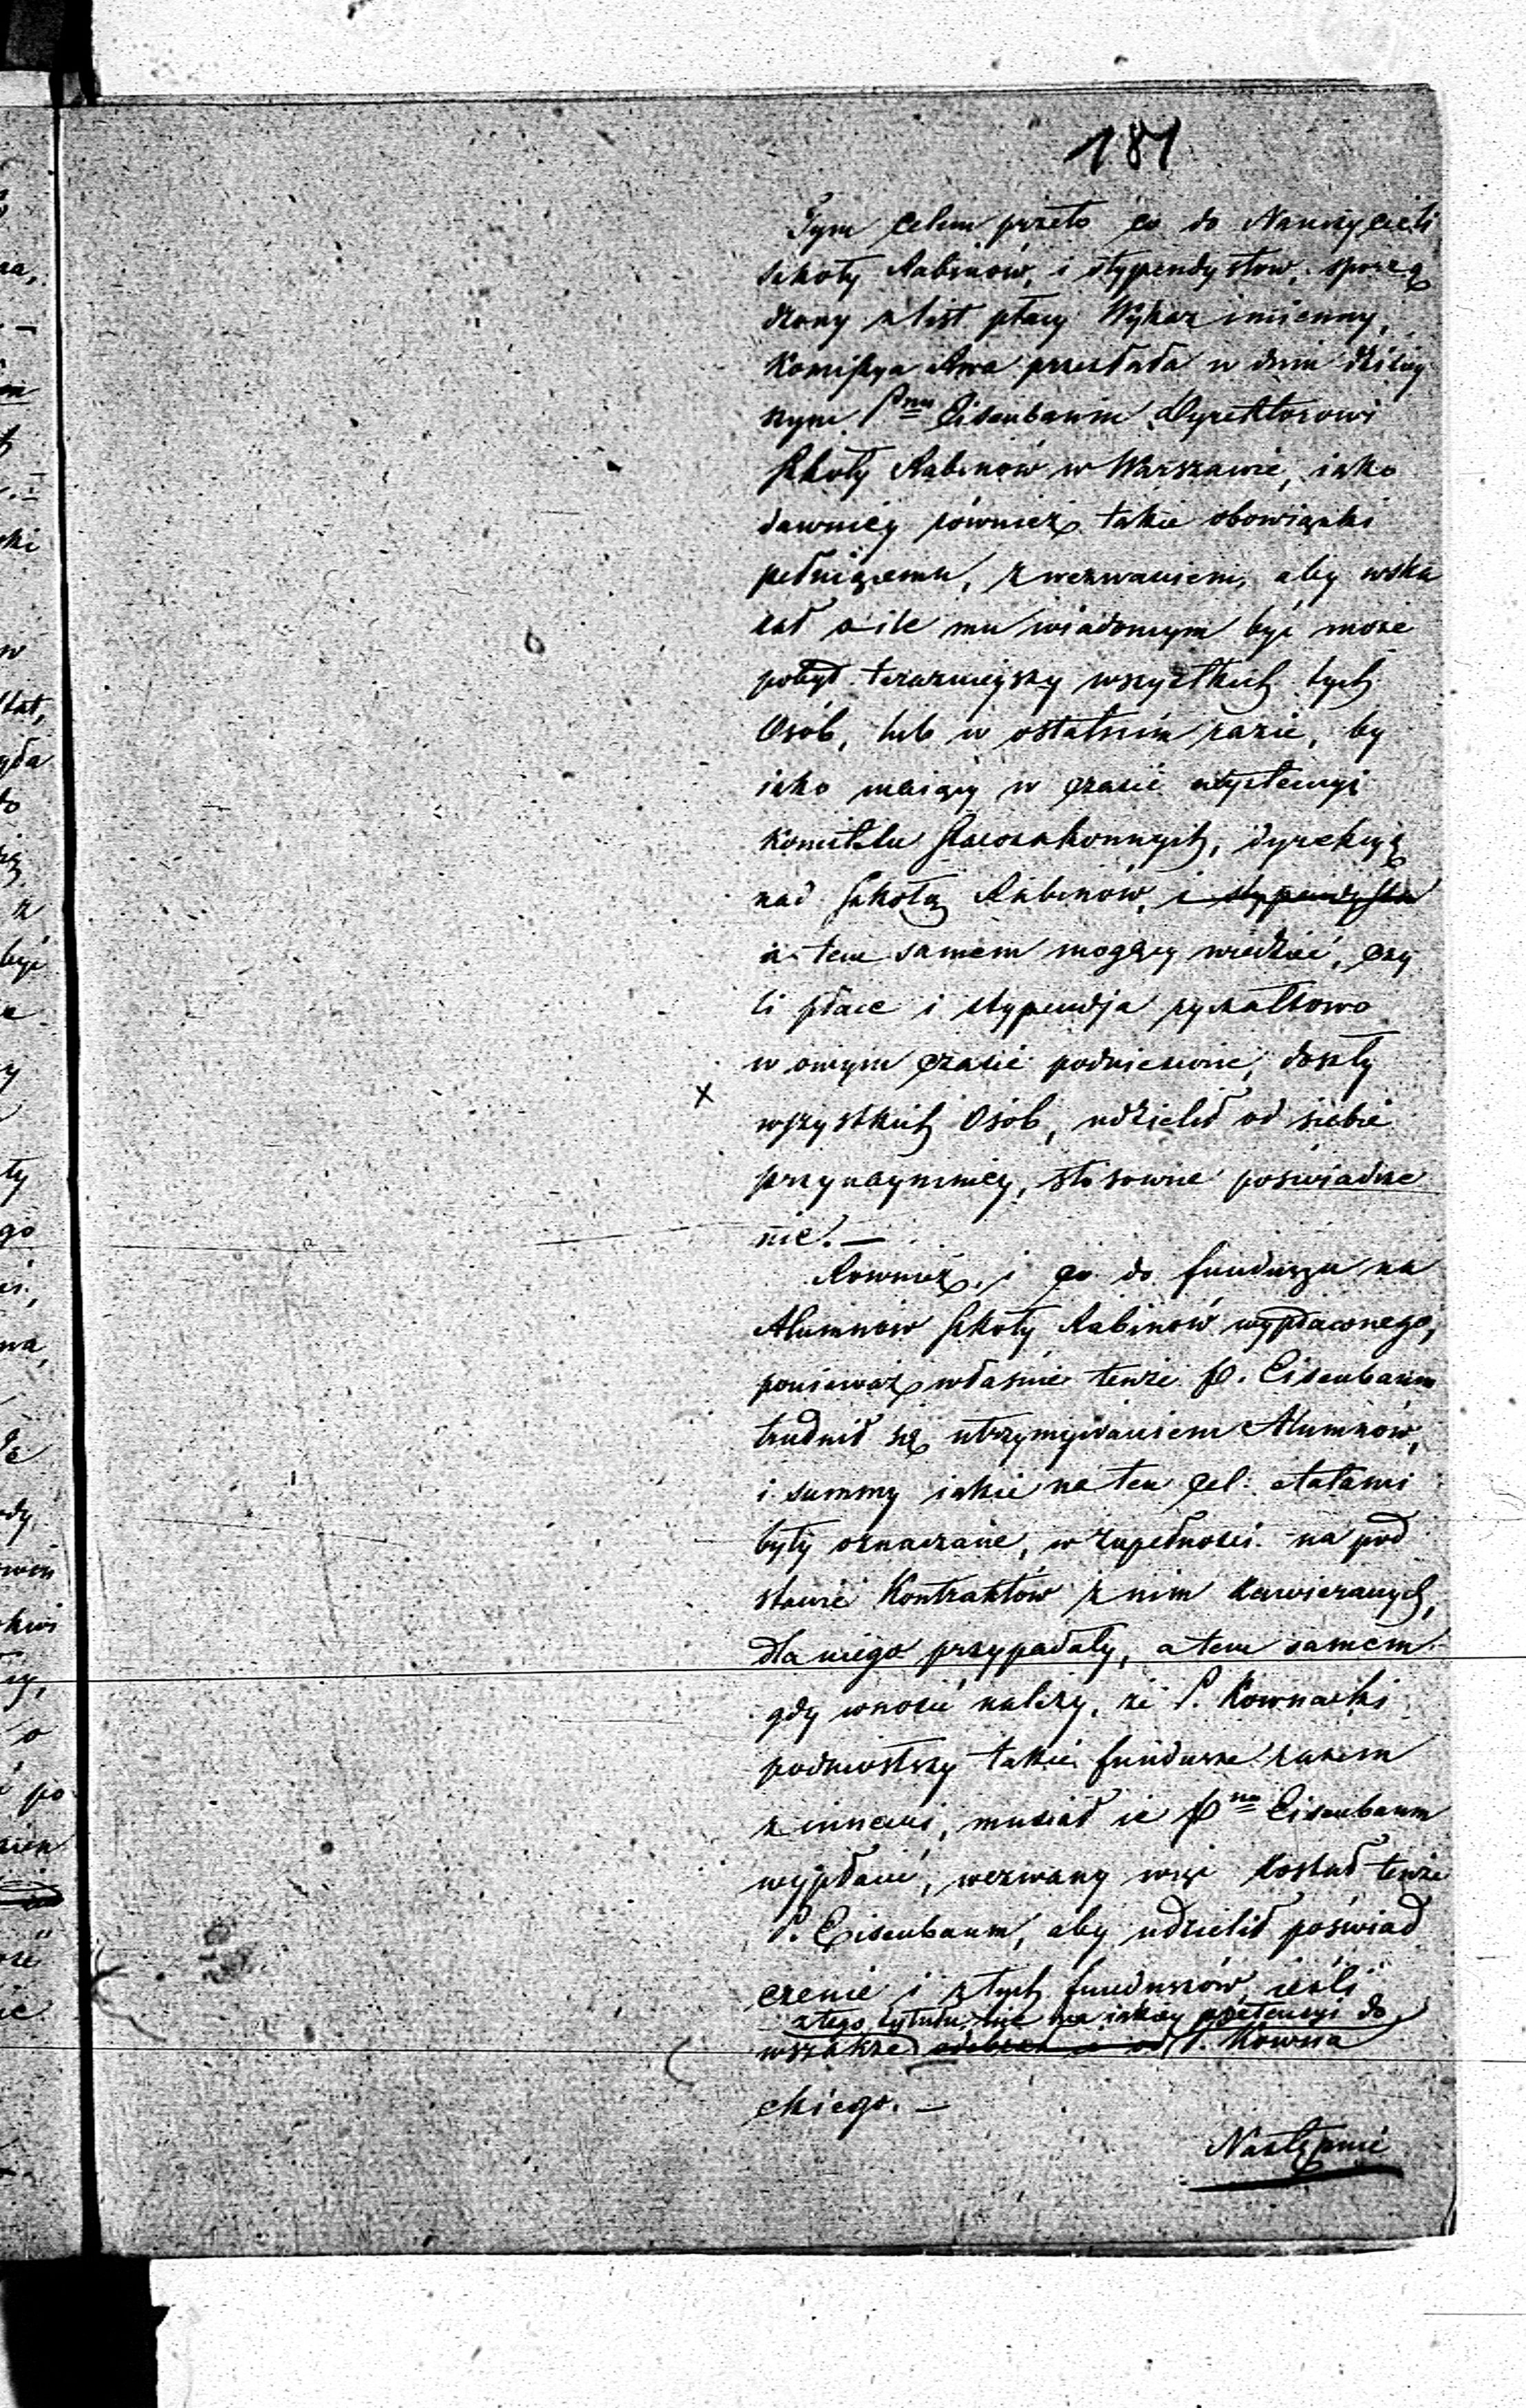 181
Tym celem przeto co do Nauczycieli
szkoły Rabinów, i stypendystow, sporzą
dzony z list płacy Wykaz imienny,
Kommissya Rząd przesłała w dniu dzisiey
szym Pnu Eisenbaum Dyrektorowi
Szkoły Rabinów w Warszawie, iako
dawniey również takie obowiązki
pełniącemu, z wezwaniem, aby wska
zał o ile mu wiadomym być może
pobyt teraznieyszy wszystkich tych
Osób, lub w ostatnim razie, by
iako maiący w czasie exystencyi
Komitetu Starozakonnych, dyrekcyą
nad Szkołą Rabinów, i stypendysta
a tem samem mogący wiedzieć, czy
li płace i stypendja ryczałtowo
w owym czasie podniesione, doszły
wszystkich Osób, udzielił od siebie
przynaymniey, stosowne poswiadcze
nie. —
Rownież, i co do funduszu na
Alumnów Szkoły Rabinów wypłaconego,
ponieważ właśnie tenże P. Eisenbaum
trudnił się utrzymywaniem Alumnów,
i summy iakie na ten cel etatami
były oznaczane, w zupełności na pod
stawie Kontraktów z nim zawieranych,
dla niego przypadały, a tem samem
gdy wnosić należy, że P. Kownacki
podniosłszy takie fundusze razem
z innemi, musiał ie Pnu Eisenbaum
wypłacić, wezwany więc został tenże
P. Eisenbaum, aby udzielił poświad
czenie i z tych funduszów, ieśli
z tego tytułu nie ma iakiey pretensyi do
wszakże P. Kowna
ckiego. —
Następnie